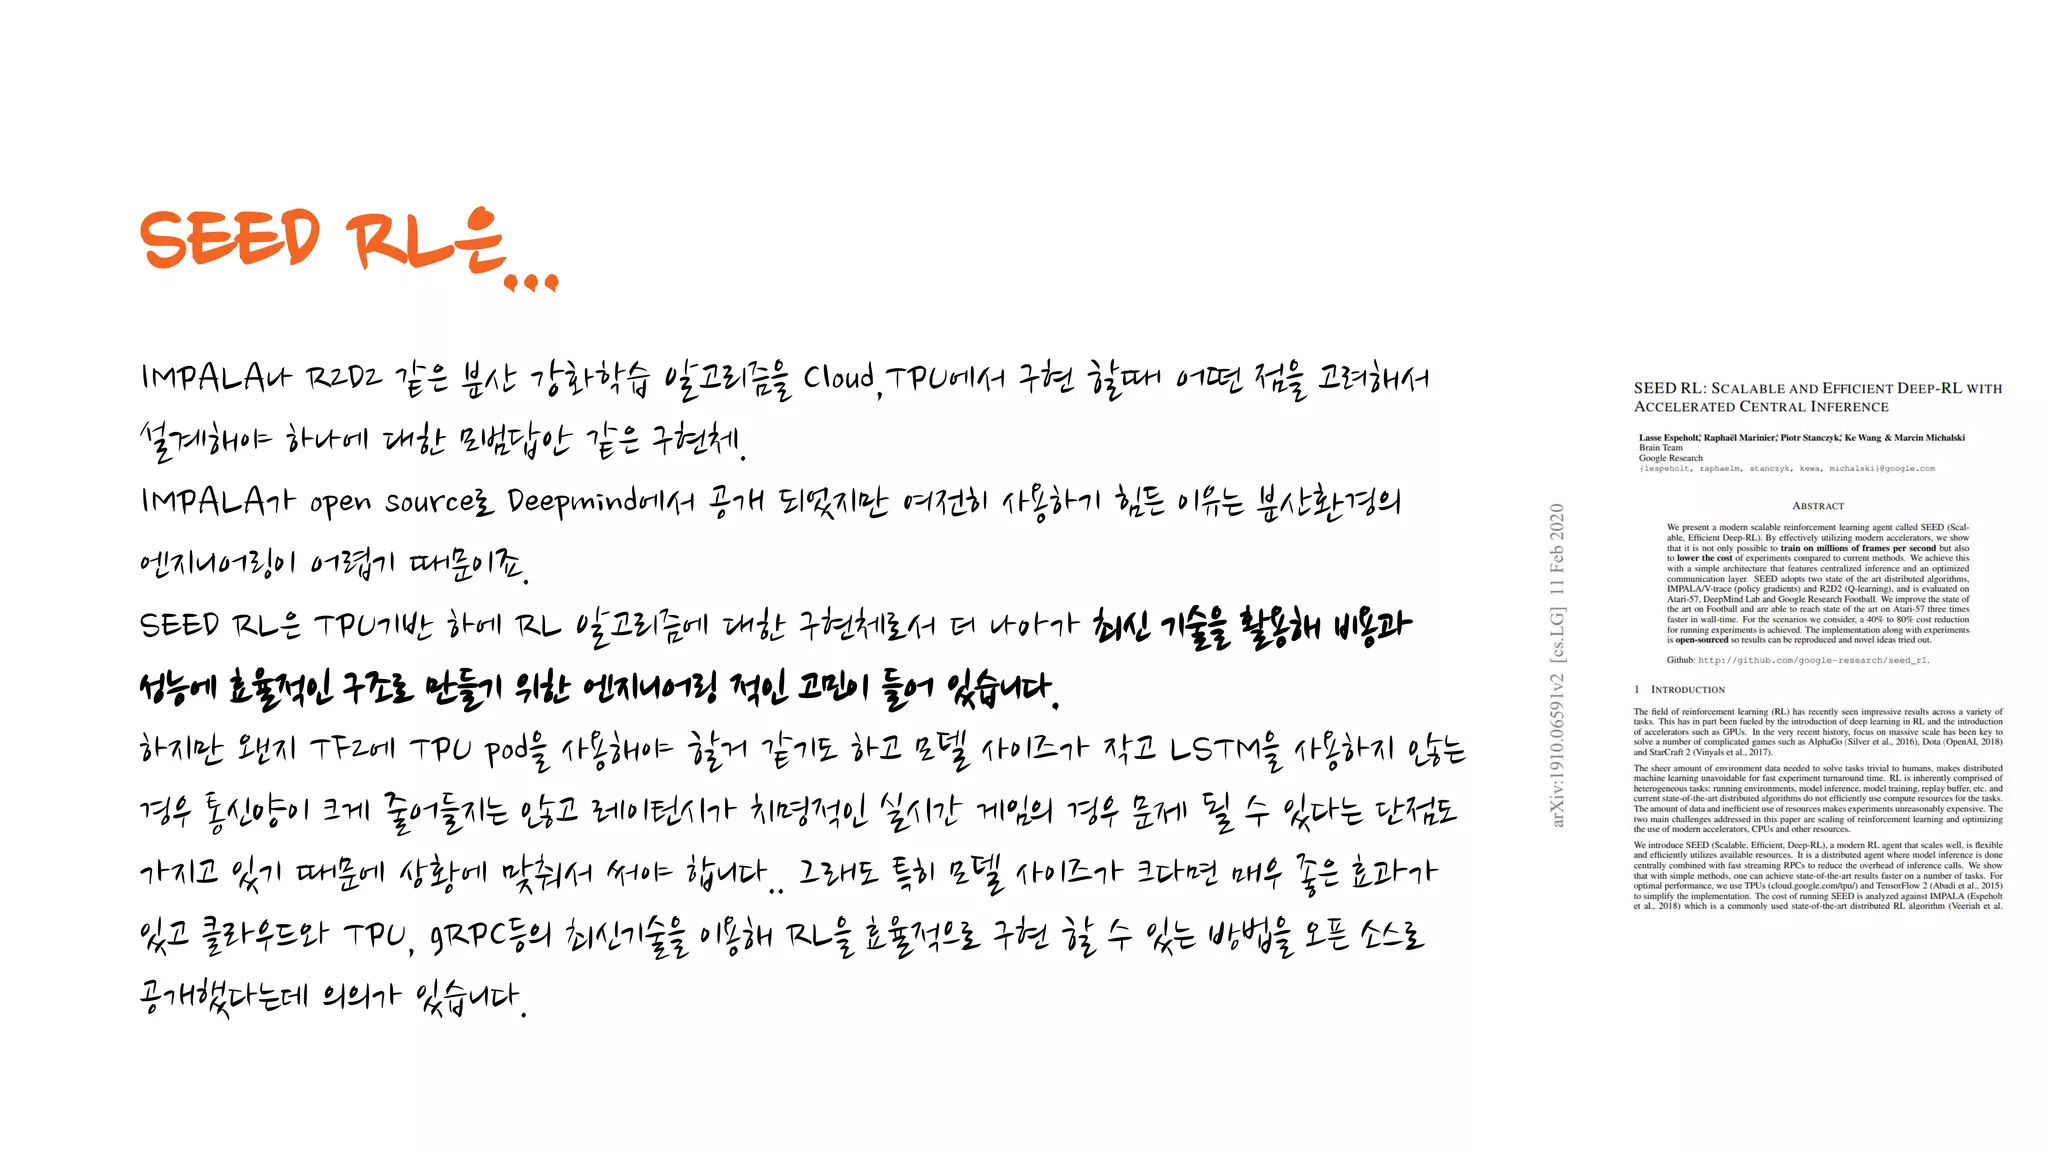 SEED RL은...
IMPALA나 R2D2 같은 분산 강화학습 알고리즘을 Cloud,TPU에서 구현 할때 어떤 점을 고려해서
설계해야 하나에 대한 모범답안 같은 구현체.
IMPALA가 open source로 Deepmind에서 공개 되었지만 여전히 사용하기 힘든 이유는 분산환경의
엔지니어링이 어렵기 때문이죠.
SEED RL은 TPU기반 하에 RL 알고리즘에 대한 구현체로서 더 나아가 최신 기술을 활용해 비용과
성능에 효율적인 구조로 만들기 위한 엔지니어링 적인 고민이 들어 있습니다.
하지만 왠지 TF2에 TPU pod을 사용해야 할거 같기도 하고 모델 사이즈가 작고 LSTM을 사용하지 않는
경우 통신양이 크게 줄어들지는 않고 레이턴시가 치명적인 실시간 게임의 경우 문제 될 수 있다는 단점도
가지고 있기 때문에 상황에 맞춰서 써야 합니다.. 그래도 특히 모델 사이즈가 크다면 매우 좋은 효과가
있고 클라우드와 TPU, gRPC등의 최신기술을 이용해 RL을 효율적으로 구현 할 수 있는 방법을 오픈 소스로
공개했다는데 의의가 있습니다.
arXiv:1910.06591v2 [cs.LG] 11 Feb 2020
SEED RL: SCALABLE AND EFFICIENT DEEP-RL WITH
ACCELERATED CENTRAL INFERENCE
Lasse Espeholt*, Raphaël Marinier*, Piotr Stanczyk*, Ke Wang & Marcin Michalski
Brain Team
Google Research
{lespeholt, raphaelm, stanczyk, kewa, michalski}@google.com
ABSTRACT
We present a modern scalable reinforcement learning agent called SEED (Scal-
able, Efficient Deep-RL). By effectively utilizing modern accelerators, we show
that it is not only possible to train on millions of frames per second but also
to lower the cost of experiments compared to current methods. We achieve this
with a simple architecture that features centralized inference and an optimized
communication layer. SEED adopts two state of the art distributed algorithms,
IMPALA/V-trace (policy gradients) and R2D2 (Q-learning), and is evaluated on
Atari-57, DeepMind Lab and Google Research Football. We improve the state of
the art on Football and are able to reach state of the art on Atari-57 three times
faster in wall-time. For the scenarios we consider, a 40% to 80% cost reduction
for running experiments is achieved. The implementation along with experiments
is open-sourced so results can be reproduced and novel ideas tried out.
Github: http://github.com/google-research/seed_rl.
1 INTRODUCTION
The field of reinforcement learning (RL) has recently seen impressive results across a variety of
tasks. This has in part been fueled by the introduction of deep learning in RL and the introduction
of accelerators such as GPUs. In the very recent history, focus on massive scale has been key to
solve a number of complicated games such as AlphaGo (Silver et al., 2016), Dota (OpenAI, 2018)
and StarCraft 2 (Vinyals et al., 2017).
The sheer amount of environment data needed to solve tasks trivial to humans, makes distributed
machine learning unavoidable for fast experiment turnaround time. RL is inherently comprised of
heterogeneous tasks: running environments, model inference, model training, replay buffer, etc. and
current state-of-the-art distributed algorithms do not efficiently use compute resources for the tasks.
The amount of data and inefficient use of resources makes experiments unreasonably expensive. The
two main challenges addressed in this paper are scaling of reinforcement learning and optimizing
the use of modern accelerators, CPUs and other resources.
We introduce SEED (Scalable, Efficient, Deep-RL), a modern RL agent that scales well, is flexible
and efficiently utilizes available resources. It is a distributed agent where model inference is done
centrally combined with fast streaming RPCs to reduce the overhead of inference calls. We show
that with simple methods, one can achieve state-of-the-art results faster on a number of tasks. For
optimal performance, we use TPUs (cloud.google.com/tpu/) and TensorFlow 2 (Abadi et al., 2015)
to simplify the implementation. The cost of running SEED is analyzed against IMPALA (Espeholt
et al., 2018) which is a commonly used state-of-the-art distributed RL algorithm (Veeriah et al.